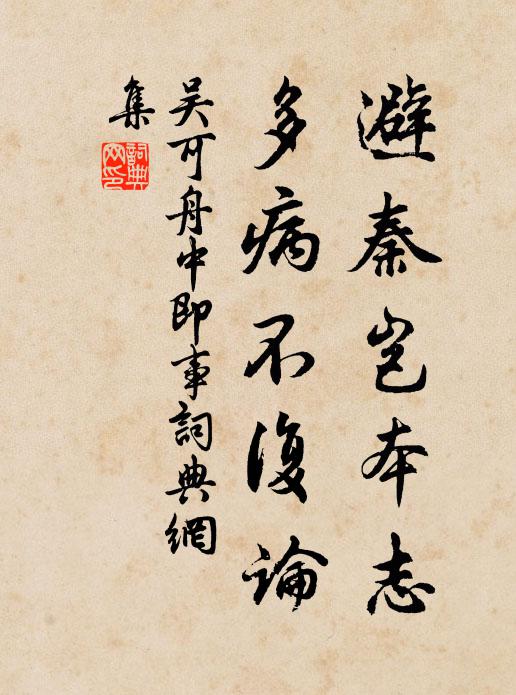 避秦岂本志
多病不復論
吴可舟中即事詞典網
集
詞典
网印